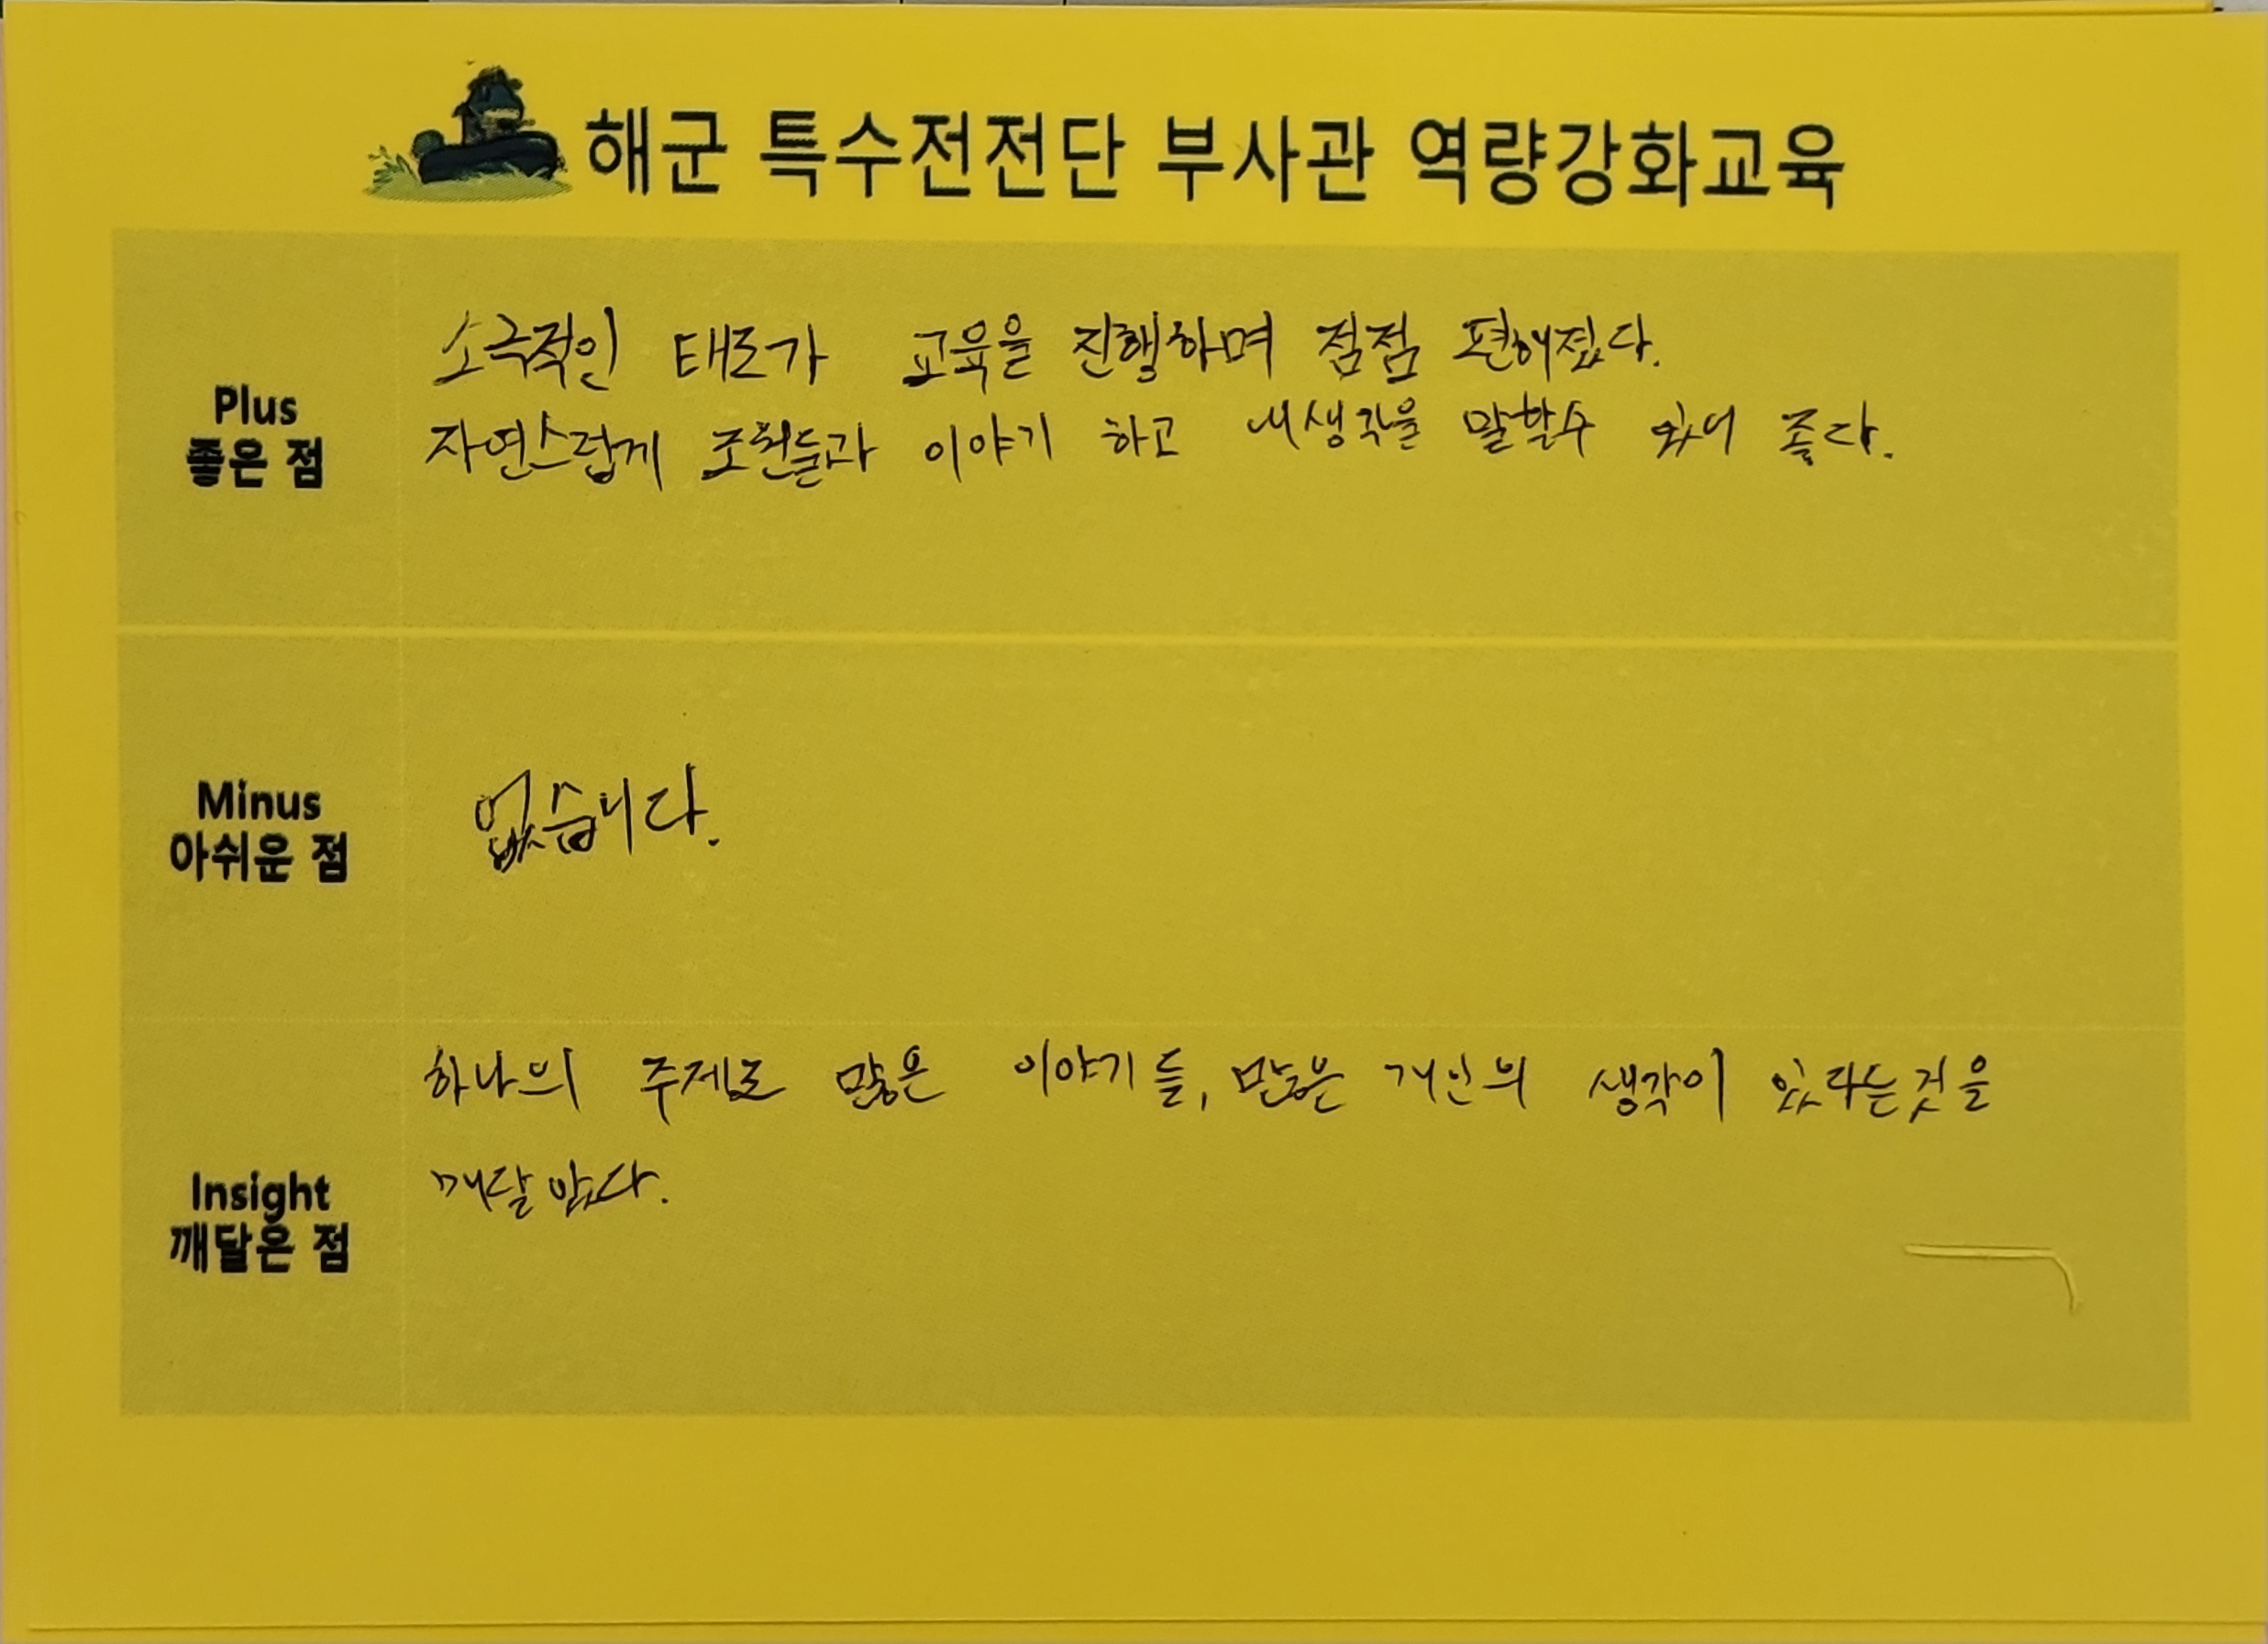 해군 특수전전단 부사관 역량강화교육
Plus
좋은 점
소극적인 태도가 교육을 진행하며 점점 편해졌다.
자연스럽게 조원들과 이야기 하고 내생각을 말할수 있어 좋다.
Minus
아쉬운 점
없습니다.
Insight
깨달은 점
하나의 주제로 많은 이야기들, 많은 개인의 생각이 있다는것을
깨달았다.